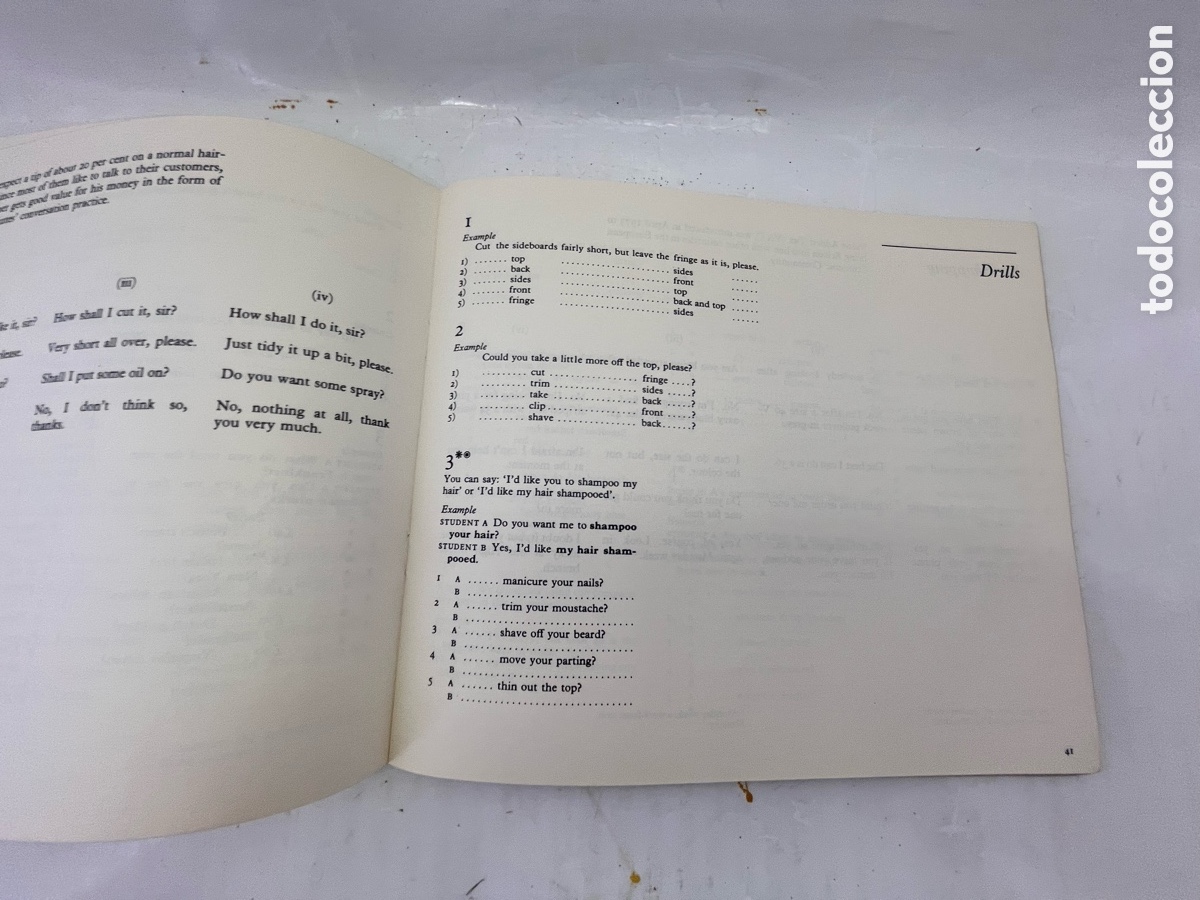 expect a tip of about 20 per cent on a normal hair-
since most of them like to talk to their customers,
gets good value for his money in the form of
conversation practice.
(iii)
How shall I cut it, sir?
Very short all over, please.
Shall I put some oil on?
No, I don't think so,
thanks.
(iv)
How shall I do it, sir?
Just tidy it up a bit, please.
Do you want some spray?
No, nothing at all, thank
you very much.
Drills
1
Example
Cut the sideboards fairly short, but leave the fringe as it is, please.
1) ....... top ...................... sides ......
2) ....... back ...................... front ......
3) ....... sides ...................... top ......
4) ....... front ...................... back and top ......
5) ....... fringe ...................... sides ......
2
Example
Could you take a little more off the top, please?
1) ......... cut ................. fringe ....?
2) ......... trim ................. sides .....?
3) ......... take ................. back .....?
4) ......... clip ................. front .....?
5) ......... shave ................ back......?
3**
You can say: 'I'd like you to shampoo my
hair' or 'I'd like my hair shampooed'.
Example
STUDENT A Do you want me to shampoo
your hair?
STUDENT B Yes, I'd like my hair sham-
pooed.
1 A ...... manicure your nails?
B ..............................
2 A ...... trim your moustache?
B ..............................
3 A ...... shave off your beard?
B ..............................
4 A ...... move your parting?
B ..............................
5 A ...... thin out the top?
B ..............................
41
todocoleccion